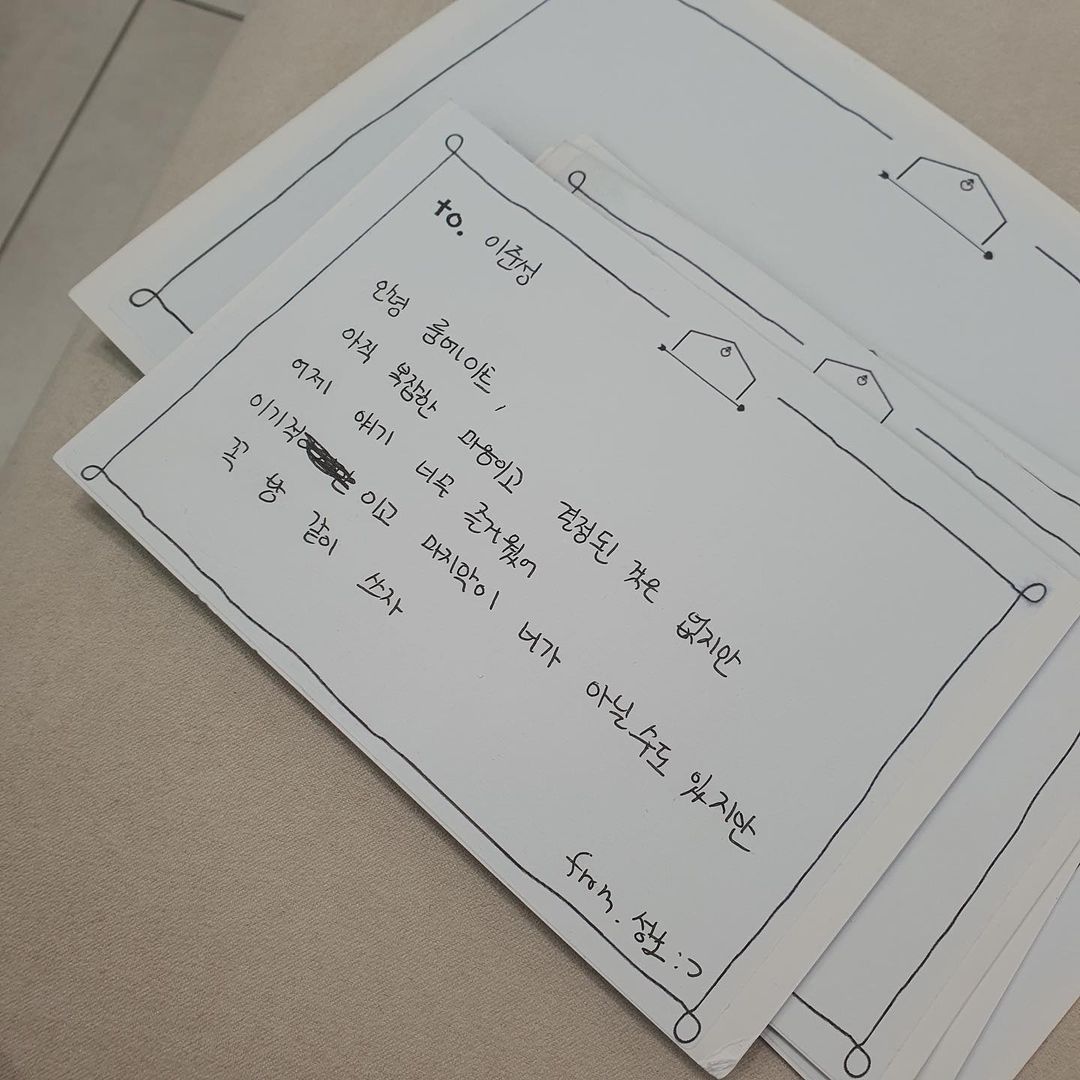 to. 이준성
안녕 룸메이트,
아직 복잡한 마음이고 결정된 것은 없지만
어제 얘기 너무 즐거웠어
이기적 이고 마지막이 너가 아닐수도 있지만
꼭 방 같이 쓰자
from. 성호 :)